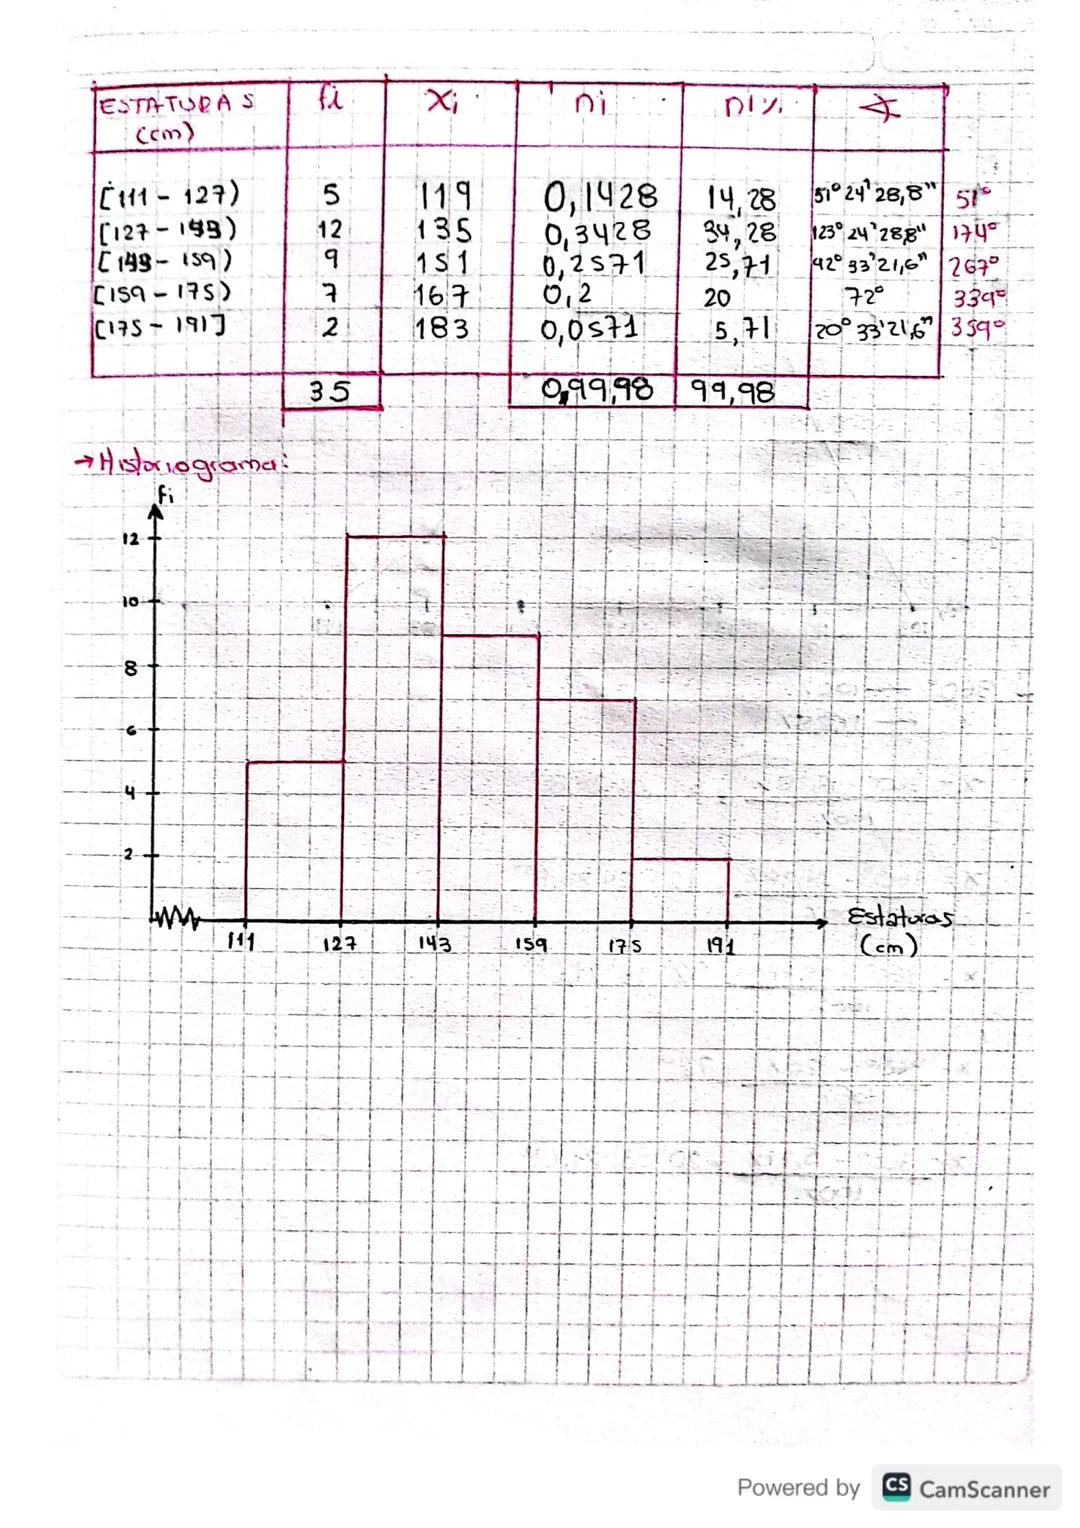 ESTATURAS fi Xi ni ni% ∢
(cm)
[111 - 127) 5 119 0,1428 14,28 51° 24' 28,8" 51°
[127 - 143) 12 135 0,3428 34,28 123° 24' 28,8" 174°
[143 - 159) 9 151 0,2571 25,71 42° 33' 21,6" 267°
[159 - 175) 7 167 0,2 20 72° 339°
[175 - 191] 2 183 0,0571 5,71 20° 33' 21,6" 359°
35 0,99,98 99,98
→ Historiograma:
fi
12
10
8
6
4
2
111 127 143 159 175 191
Estaturas
(cm)
Powered by CS CamScanner